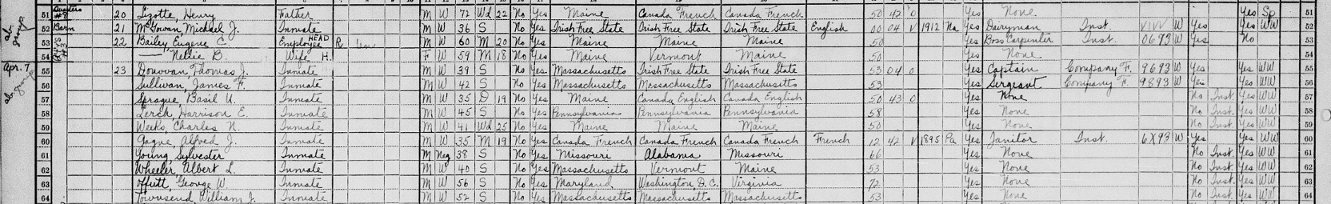 51 Quarters #8 20 Lizotte, Henry Father M W 72 Wd 22 No Yes Maine Canada French Canada French 50 42 0 Yes None Yes Sp 51
52 Barn 21 McGowan Michael J. Inmate M W 36 S No Yes Irish Free State Irish Free State Irish Free State English 00 04 V 1912 Na Yes Dairyman Inst VIVV W Yes Yes WW 52
53 22 Bailey Eugene C. HEAD Employee R M W 60 M 20 No Yes Maine Maine Maine 50 Yes Boss Carpenter Inst. 0693 W Yes No 53
54 Nellie B. Wife H. F W 59 M 18 No Yes Maine Vermont Maine 50 Yes None 54
Apr. 7 55 23 Donovan, Thomas J. Inmate M W 39 S No Yes Massachusetts Irish Free State Irish Free State 53 04 0 Yes Captain Company F. 9693 W Yes Yes WW 55
56 Sullivan, James F. Inmate M W 42 S No Yes Massachusetts Massachusetts Massachusetts 53 Yes Sergeant Company F. 9893 W Yes Yes WW 56
57 Sprague, Basil U. Inmate M W 35 D 19 No Yes Maine Canada English Canada English 50 43 0 Yes None No Inst Yes WW 57
58 Lerch Harrison E. Inmate M W 45 S No Yes Pennsylvania Pennsylvania Pennsylvania 58 Yes None No Inst Yes WW 58
59 Weeks, Charles N Inmate M W 41 Wd 25 No Yes Maine Maine Maine 50 Yes None No Inst Yes WW 59
60 Gagne, Alfred J. Inmate M W 35 M 19 No Yes Canada French Canada French Canada French French 12 42 V 1895 Pa Yes Janitor Inst. 6X93 W Yes Yes WW 60
61 Young Sylvester Inmate M Neg 38 S No Yes Missouri Alabama Missouri 66 Yes None No Inst. Yes WW 61
62 Wheeler Albert L. Inmate M W 40 S No Yes Massachusetts Vermont Maine 53 Yes None No Inst. Yes WW 62
63 Offutt, George W. Inmate M W 56 S No Yes Maryland Washington, D.C. Virginia 72 Yes None No Inst. Yes WW 63
64 Townsend, William J. Inmate M W 52 S No Yes Massachusetts Massachusetts Massachusetts 53 Yes None No Inst Yes WW 64